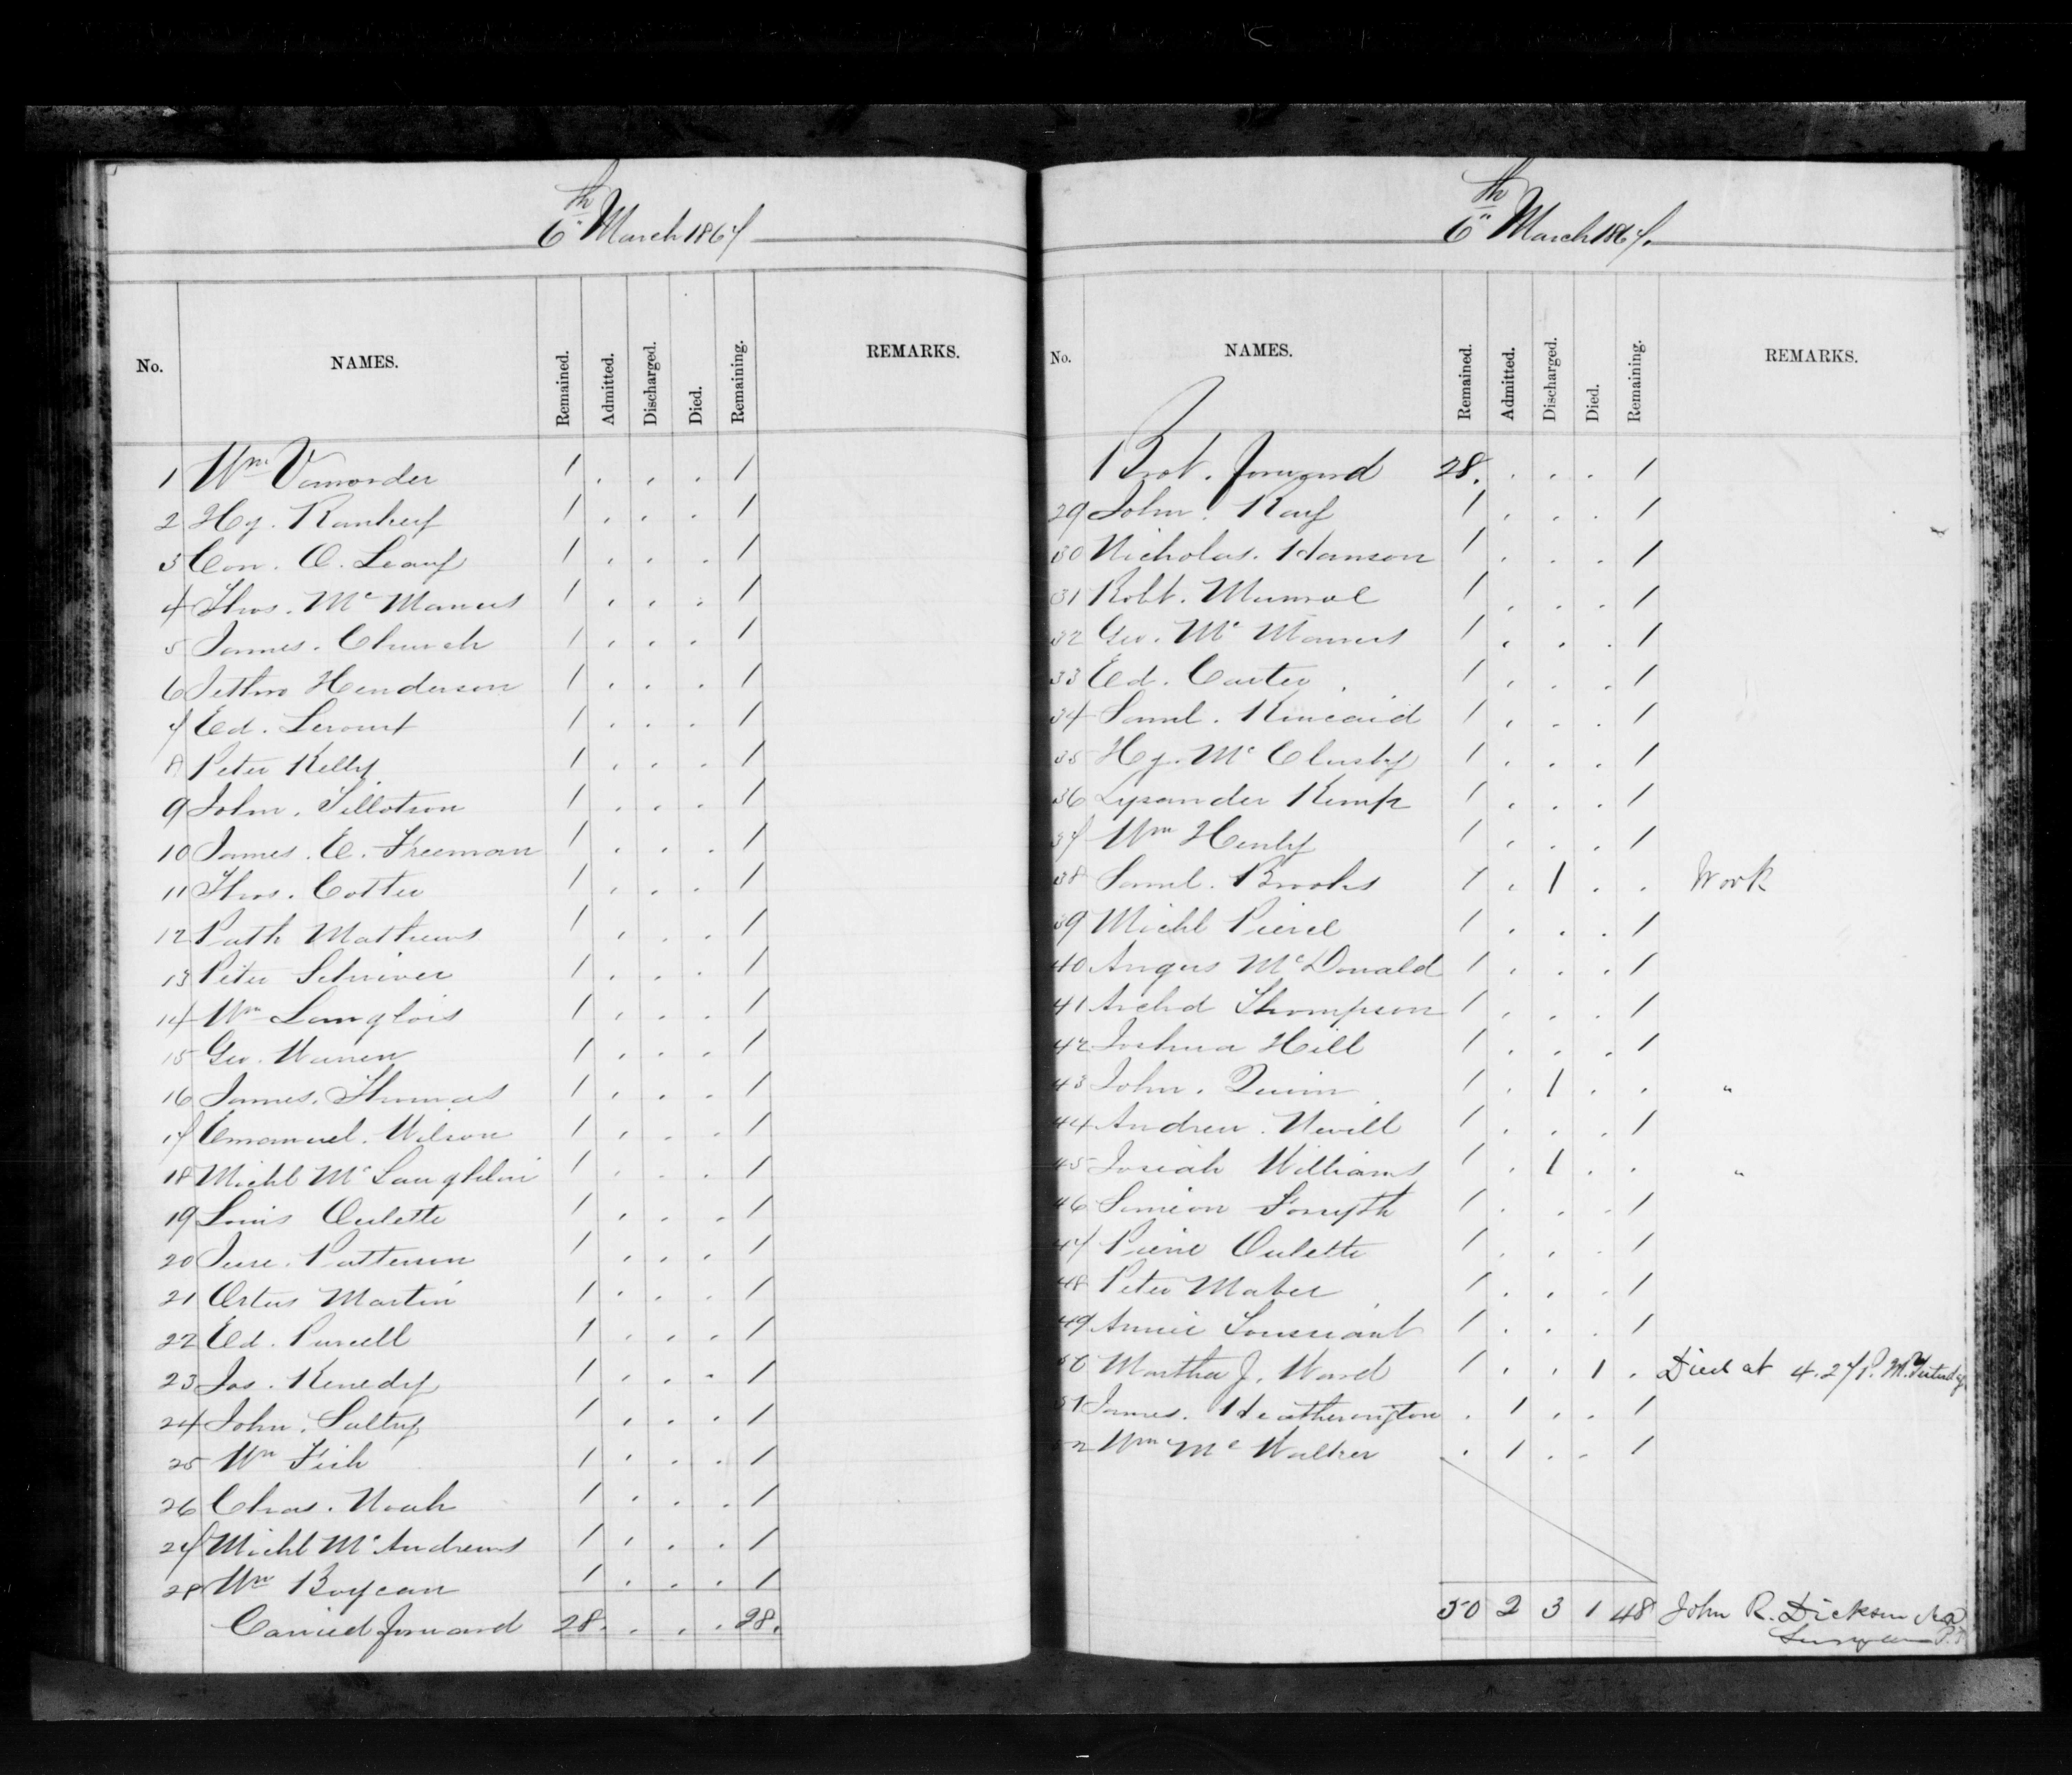 6th March 1867
No. NAMES. Remained. Admitted. Discharged. Died. Remaining. REMARKS.
1 Wm Vanorder 1 . . . 1
2 Hy. 1 . . . 1
3 Con. O. Leary 1 . . . 1
4 Thos. McManus 1 . . . 1
5 James. Church 1 . . . 1
6 Jethro Henderson 1 . . . 1
7 Ed. 1 . . . 1
8 Peter Kelly 1 . . . 1
9 John. Tillotson 1 . . . 1
10 James. E. Freeman 1 . . . 1
11 Thos. Cotter 1 . . . 1
12 Patk Mathews 1 . . . 1
13 Peter Schriver 1 . . . 1
14 Wm Langlois 1 . . . 1
15 Geo. Warren 1 . . . 1
16 James. Thomas 1 . . . 1
17 Emanuel. Wilson 1 . . . 1
18 Michl McLaughlin 1 . . . 1
19 Louis Oulette 1 . . . 1
20 Jesse. Patterson 1 . . . 1
21 Ortus Martin 1 . . . 1
22 Ed. Purcell 1 . . . 1
23 Jos. Kenedy 1 . . . 1
24 John. Saltry 1 . . . 1
25 Wm Fish 1 . . . 1
26 Chas. Noah 1 . . . 1
27 Michl McAndrews 1 . . . 1
28 Wm Boycan 1 . . . 1
Carried forward 28. . . . 28.
6th March 1867.
No. NAMES. Remained. Admitted. Discharged. Died. Remaining. REMARKS.
Brot. forward 28. . . . 1
29 John. Ray 1 . . . 1
30 Nicholas. Hanson 1 . . . 1
31 Robt. Munroe 1 . . . 1
32 Geo. McManus 1 . . . 1
33 Ed. Carter 1 . . . 1
34 Saml. Kincaid 1 . . . 1
35 Hy. McClusky 1 . . . 1
36 Lysander Kemp 1 . . . 1
37 Wm Henly 1 . . . 1
38 Saml. Brooks 1 . 1 . . Work
39 Michl Pierce 1 . . . 1
40 Angus McDonald 1 . . . 1
41 Archd Thompson 1 . . . 1
42 Joshua Hill 1 . . . 1
43 John. Quinn 1 . 1 . . "
44 Andrew. Nevill 1 . . . 1
45 Josiah Williams 1 . 1 . . "
46 Simeon Forsyth 1 . . . 1
47 Pierre Oulette 1 . . . 1
48 Peter Maber 1 . . . 1
49 Annie Toussiant 1 . . . 1
50 Martha J. Ward 1 . . 1 . Died at 4.27 P.M. Yesterday
51 James. Heatherington . 1 . . 1
52 Wm McWalker . 1 . . 1
50 2 3 1 48 John R. Dickson MD
Surgeon P.P.